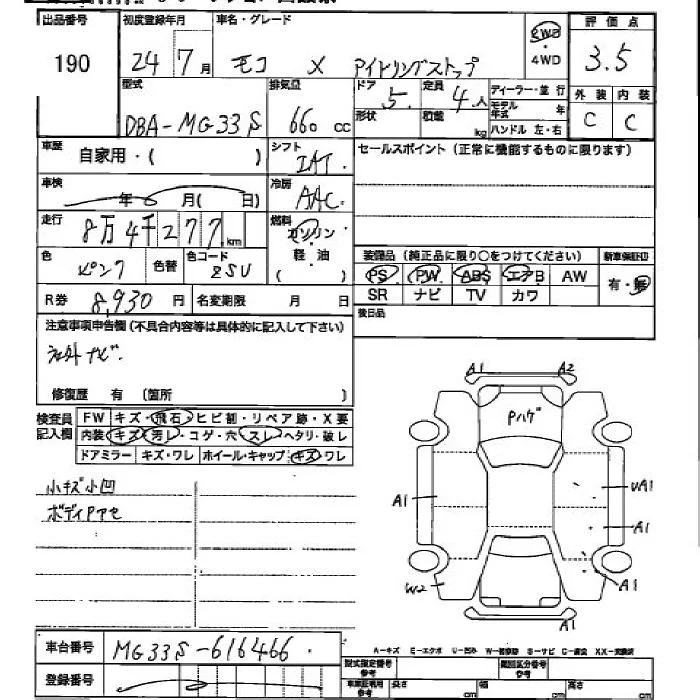 出品番号 初度登録年月 車名・グレード 2WD・4WD 評価点
190 24年 7月 モコ X アイドリングストップ 3.5
型式 排気量 ドア 定員 ディーラー・並行 外装 内装
DBA-MG33S 660 cc 5 4人 モデル年式 年 C C
形状 積載 kg ハンドル 左・右
車歴 自家用・( ) シフト IAT セールスポイント(正常に機能するものに限ります)
車検 年 月( 日) 冷房 AAC
走行 8万4千277km 燃料 ガソリン・軽・油 ( )
装備品(純正品に限り○をつけてください) 新車保証印
色 ピンク 色替 色コード ZSU
PS PW ABS エアB AW 有・無
SR ナビ TV カワ
R券 8,930円 名変期限 月 日 後日品
注意事項申告欄(不具合内容等は具体的に記入して下さい)
社外ナビ.
修復歴 有 (箇所 )
検査員記入欄 FW キズ・飛石・ヒビ割・リペア跡・X要
内装 キズ・汚レ・コゲ・穴・スレ・ヘタリ・破レ
ドアミラー キズ・ワレ ホイール・キャップ キズ・ワレ
小キズ小凹
ボディPアセ
A1 A2
Pハゲ
A1 UA1
A1
W2 A1
車台番号 MG33S-616466
A-キズ E-エクボ U-凹み W-補修跡 S-サビ C-腐食 XX-交換済
登録番号
型式指定番号 参考 類別区分番号 参考
車庫証明用 参考 長さ cm 幅 cm 高さ cm